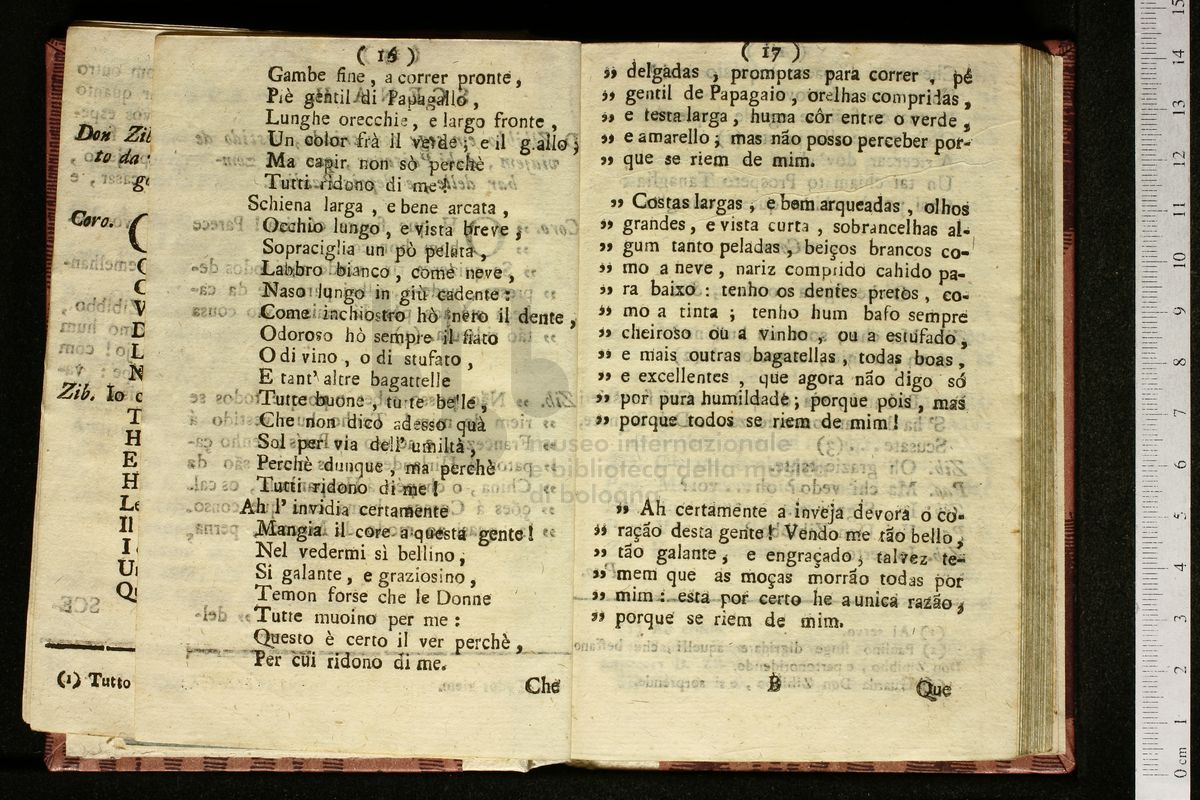 ( 16 )
Gambe fine, a correr pronte,
Piè gentil di Papagallo,
Lunghe orecchie, e largo fronte,
Un color frà il verde, e il g.allo;
Ma capir non sò perchè
Tutti ridono di me!
Schiena larga, e bene arcata,
Occhio lungo, e vista breve,
Sopraciglia un pò pelata,
Labbro bianco, come neve,
Naso lungo in giù cadente:
Come inchiostro hò nero il dente,
Odoroso hò sempre il fiato
O di vino, o di stufato,
E tant' altre bagattelle
Tutte buone, tutte belle,
Che non dico adesso quà
Sol per via dell' umiltà,
Perchè dunque, ma perchè
Tutti ridono di me!
Ah l' invidia certamente
Mangia il core a questa gente!
Nel vedermi sì bellino,
Si galante, e graziosino,
Temon forse che le Donne
Tutte muoino per me:
Questo è certo il ver perchè,
Per cui ridono di me.
Che
Don Zib
to da
go
Coro. (
Zib. Io
T
H
E
H
Le
Il
I
Un
Qu
SCE
(1) Tutto
( 17 )
„ delgadas, promptas para correr, pé
„ gentil de Papagaio, orelhas compridas,
„ e testa larga, huma côr entre o verde,
„ e amarello; mas não posso perceber por-
„ que se riem de mim.
„ Costas largas, e bem arqueadas, olhos
„ grandes, e vista curta, sobrancelhas al-
„ gum tanto peladas, beiços brancos co-
„ mo a neve, nariz comprido cahido pa-
„ ra baixo: tenho os dentes pretos, co-
„ mo a tinta; tenho hum bafo sempre
„ cheiroso ou a vinho, ou a estufado,
„ e mais outras bagatellas, todas boas,
„ e excellentes, que agora não digo só
„ por pura humildade; porque pois, mas
„ porque todos se riem de mim!
„ Ah certamente a inveja devora o co-
„ ração desta gente! Vendo me tão bello,
„ tão galante, e engraçado, talvez te-
„ mem que as moças morrão todas por
„ mim: esta por certo he a unica razão,
„ porque se riem de mim.
B
Que
museo internazionale
e biblioteca della musica
di bologna